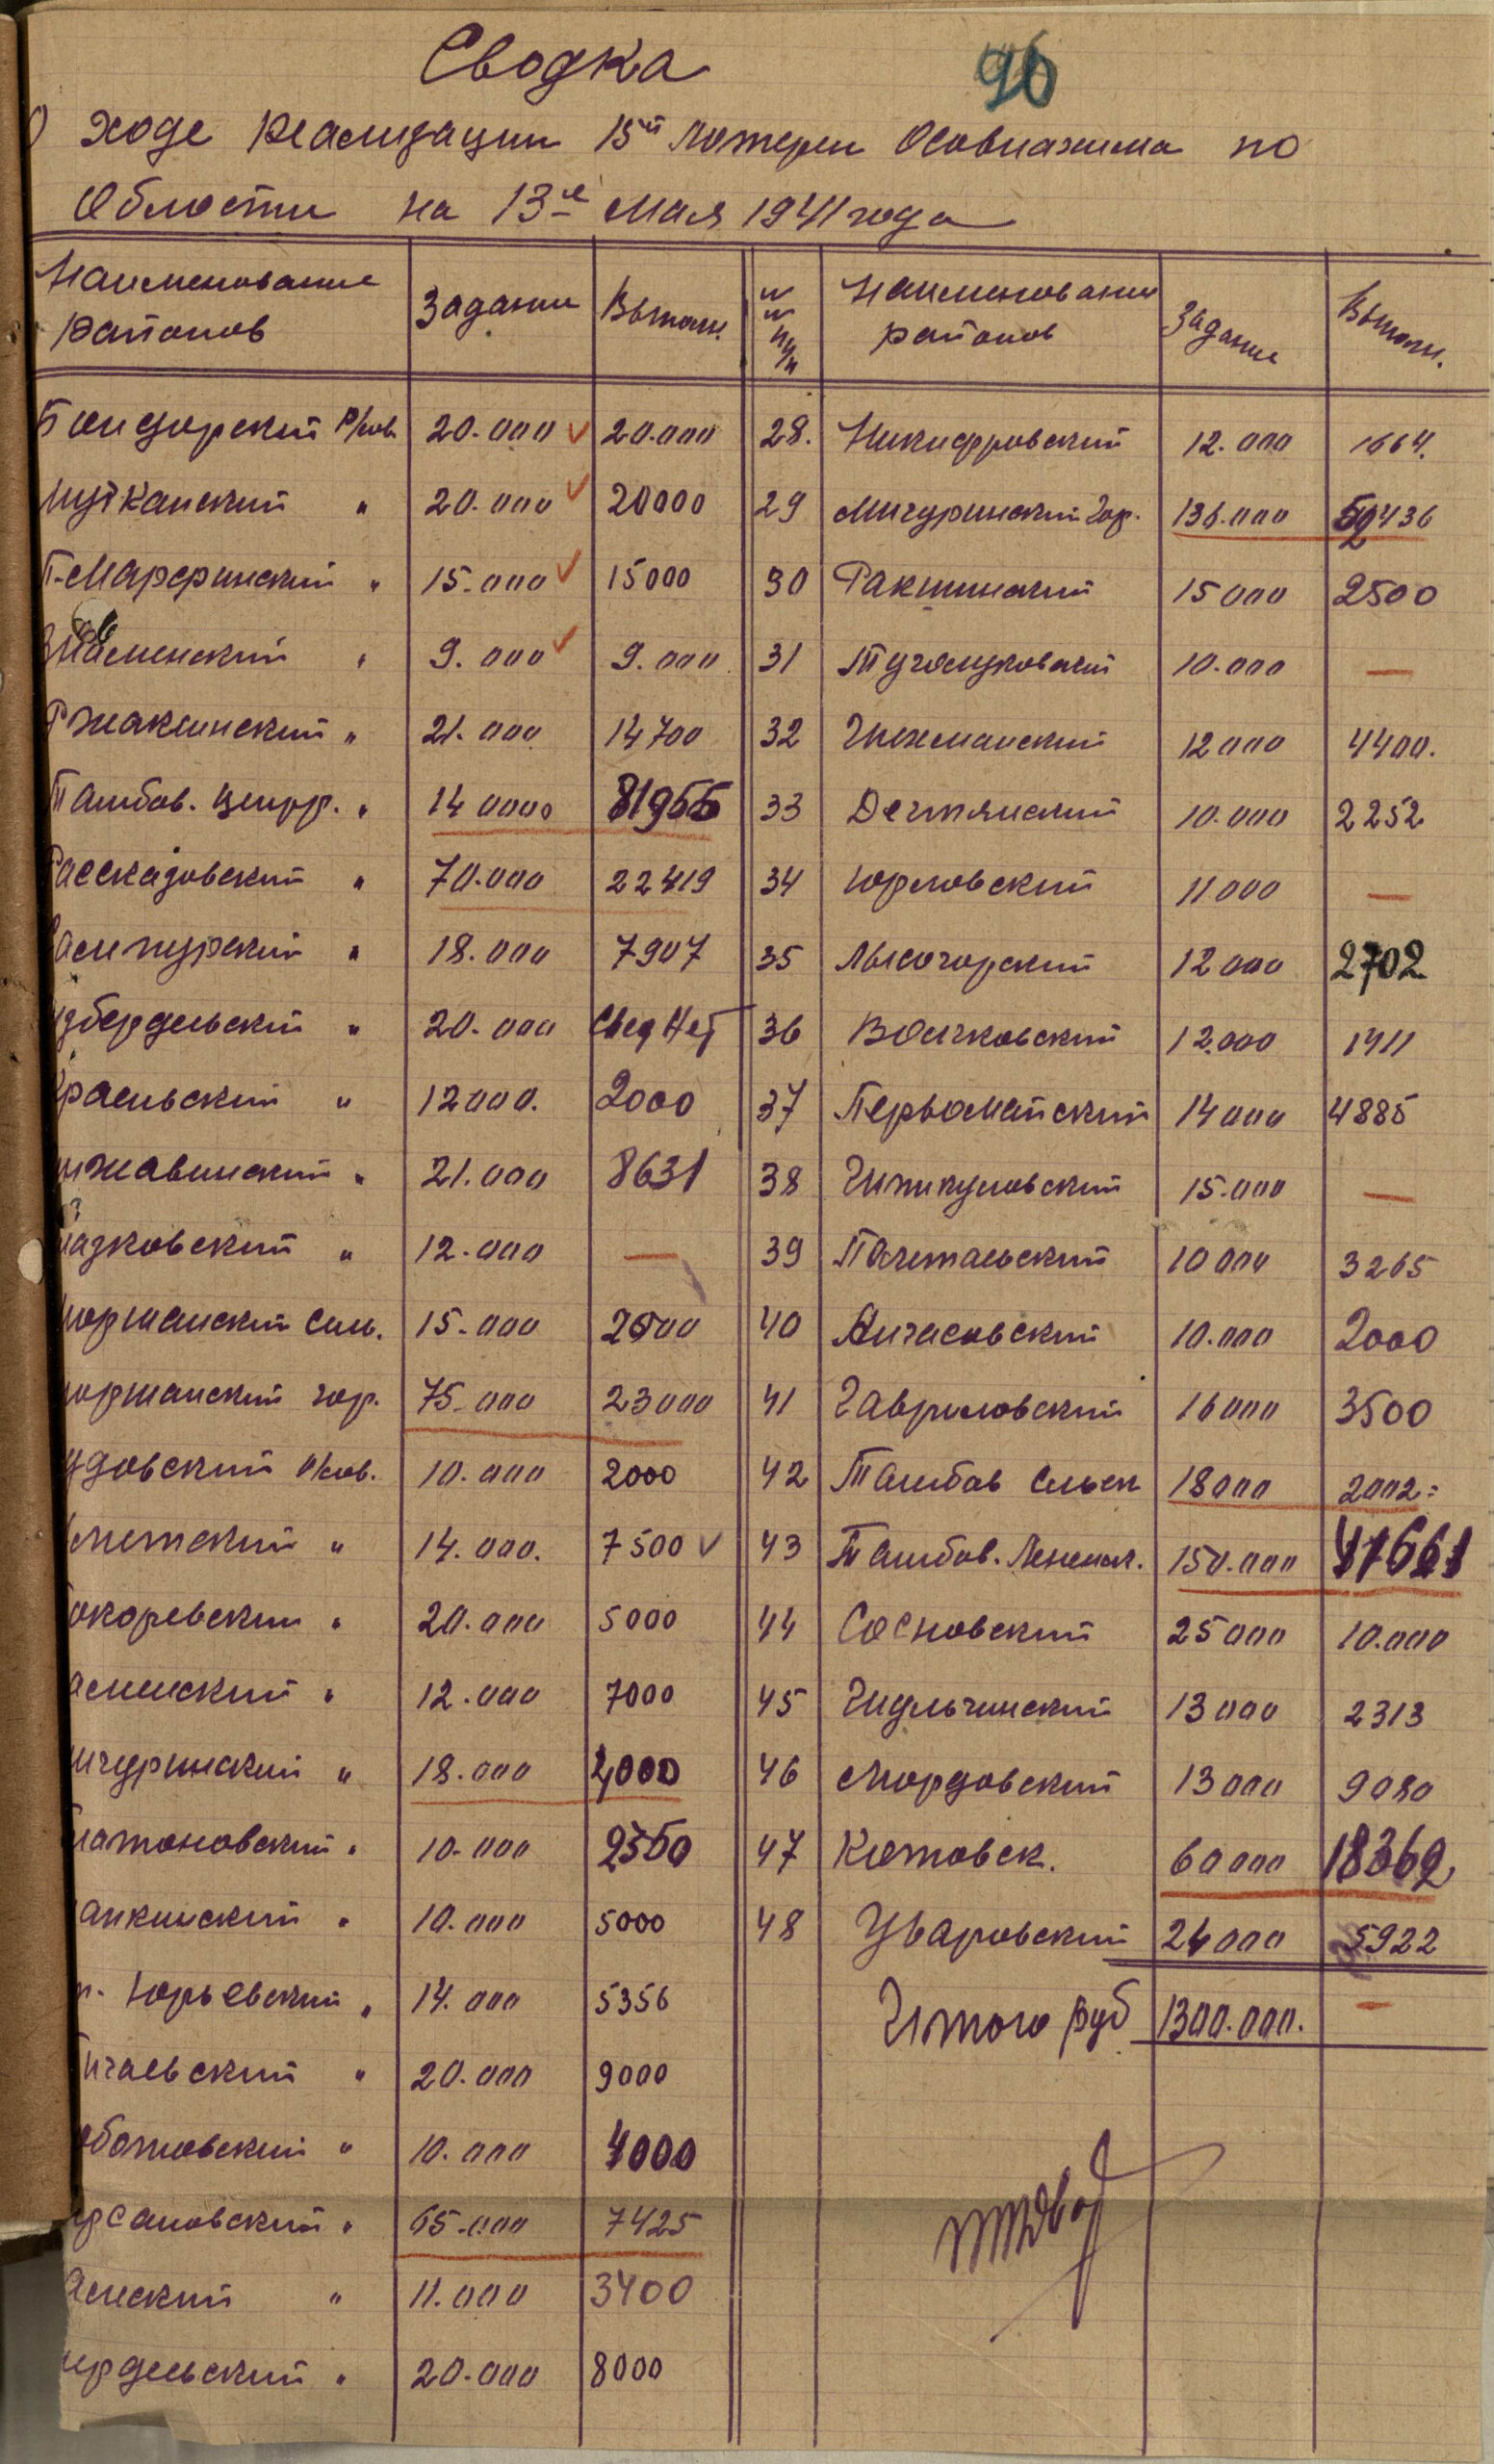 Сводка 96
О ходе реализации 15й лотереи Осоавиахима по
области на 13е мая 1941 года
Наименование районов Задание Выполн. №№ п/п Наименование районов Задание Выполн.
Бондарский р/сов. 20.000 20.000 28. Никифровский 12.000 1664.
Мучкапский " 20.000 20000 29 Мичуринский гор. 136.000 436
Марфинский " 15.000 15000 30 Ракшинский 15000 2500
Знаменский " 9.000 9.000 31 Туголуковский 10.000 —
Ржаксинский " 21.000 14700 32 Инжемански 12000 4400.
Тамбов. центр. " 140000 81955 33 Дегтянский 10.000 2252
Рассказовский " 70.000 22419 34 Юрловский 11000 —
Сампурский " 18.000 7907 35 Лысогорский 12000 2702
збердеевский " 20.000 Свед Нет 36 Волчковский 12.000 1411
раснвский " 12000. 2000 37 Первомайский 14000 4885
нжавинский " 21.000 8631 38 Хитикуловский 15.000 —
ладковский " 12.000 — 39 Пичаевский 10000 3265
моршанский сель. 15.000 2500 40 Алгасовский 10.000 2000
моршанский гор. 75.000 23000 41 Гавриловский 16000 3500
удовский р/сов. 10.000 2000 42 Тамбов Сельск 18000 2002=
метский " 14.000. 7500 43 Тамбов. Ленинск. 150.000
окоревский " 20.000 5000 44 Сосновский 25000 10.000
аменский " 12.000 7000 45 Шульгинский 13000 2313
ичуринский " 18.000 2000 46 Мордовский 13000 9080
латоновский " 10.000 2350 47 Котовск. 60000 18362
анкинский " 10.000 5000 48 Уваровский 24000 5922
. Юрьевский " 14.000 5356 Итого руб 1300.000. —
ичаевский " 20.000 9000
обатовский " 10.000 4000
рсановский " 65.000 7425
амский " 11.000 3400
рдеевский " 20.000 8000